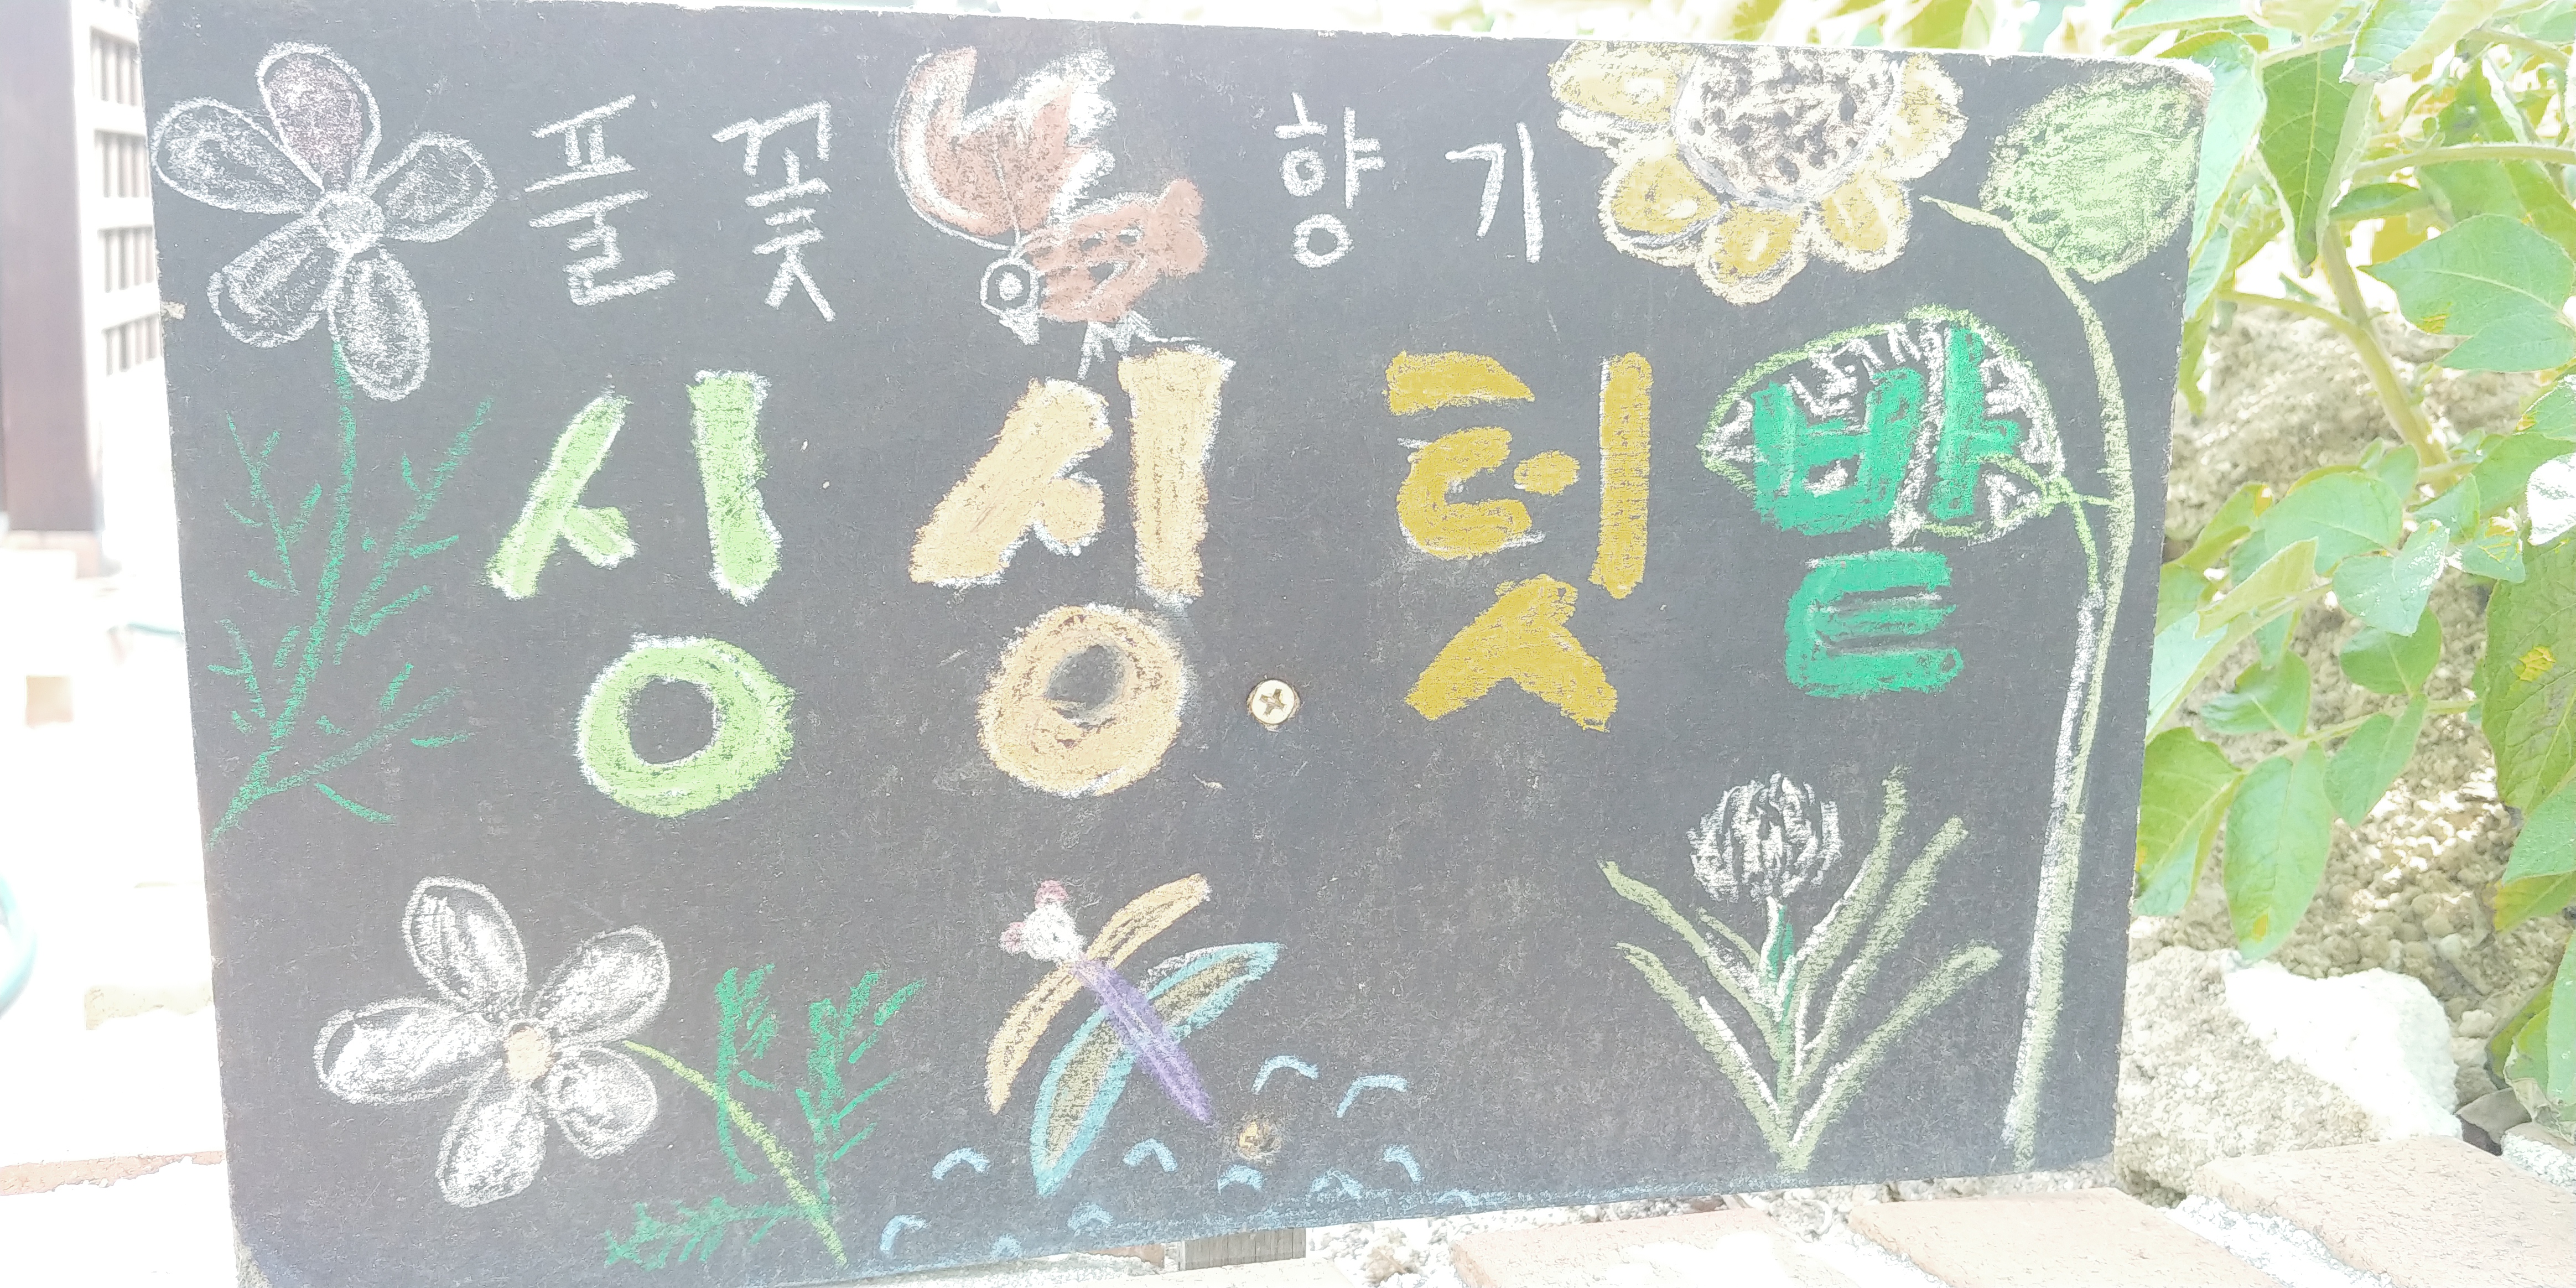 풀꽃 향기
싱싱 텃밭